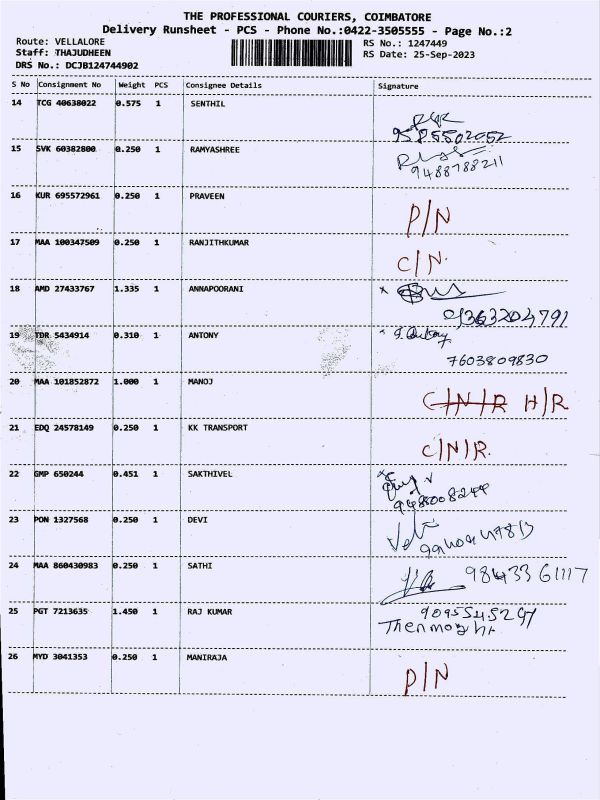 THE PROFESSIONAL COURIERS, COIMBATORE
Delivery Runsheet - PCS - Phone No.:0422-3505555 - Page No.:2
Route: VELLALORE
Staff: THAJUDHEEN
DRS No.: DCJB124744902
RS No.: 1247449
RS Date: 25-Sep-2023
S No Consignment No Weight PCS Consignee Details Signature
14 TCG 40638022 0.575 1 SENTHIL
15 SVK 60382800 0.250 1 RAMYASHREE
9488788211
16 KUR 695572961 0.250 1 PRAVEEN P/N
17 MAA 100347509 0.250 1 RANJITHKUMAR C/N.
18 AMD 27433767 1.335 1 ANNAPOORANI
9363204791
19 TDR 5434914 0.310 1 ANTONY
7603809830
20 MAA 101852872 1.000 1 MANOJ C/N/R H/R
21 EDQ 24578149 0.250 1 KK TRANSPORT C/N/R.
22 GMP 650244 0.451 1 SAKTHIVEL
23 PON 1327568 0.250 1 DEVI
24 MAA 860430983 0.250 1 SATHI 9843361117
25 PGT 7213635 1.450 1 RAJ KUMAR
26 MYD 3041353 0.250 1 MANIRAJA P/N